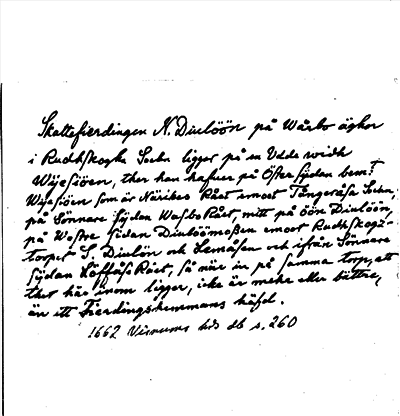 Skattefierdingen N. Diulöön på Wårbo ägor
i Rudhskogha Sochn ligger på en Udde widh
Wijesiöen, ther han hafuer på Öster sijdan bem:t
Wijesiöen som är Närikes Rået emoet Tångeråsa Sochn,
på Sönnare sijdan Wasbo Rået, mitt på öön Diulöön,
på Westre sijdan Diulöömoßen emoet Rudhskogz-
torpet S. Diulön och Lemåsen och ifrån Sönnare
sijdan Löffåsa Rået, så när in på samma torp, att
thet här inom ligger, icke är mehr eller bättre,
än ett Fierdingshemmans häfd.
1662 Visnums hds db s. 260